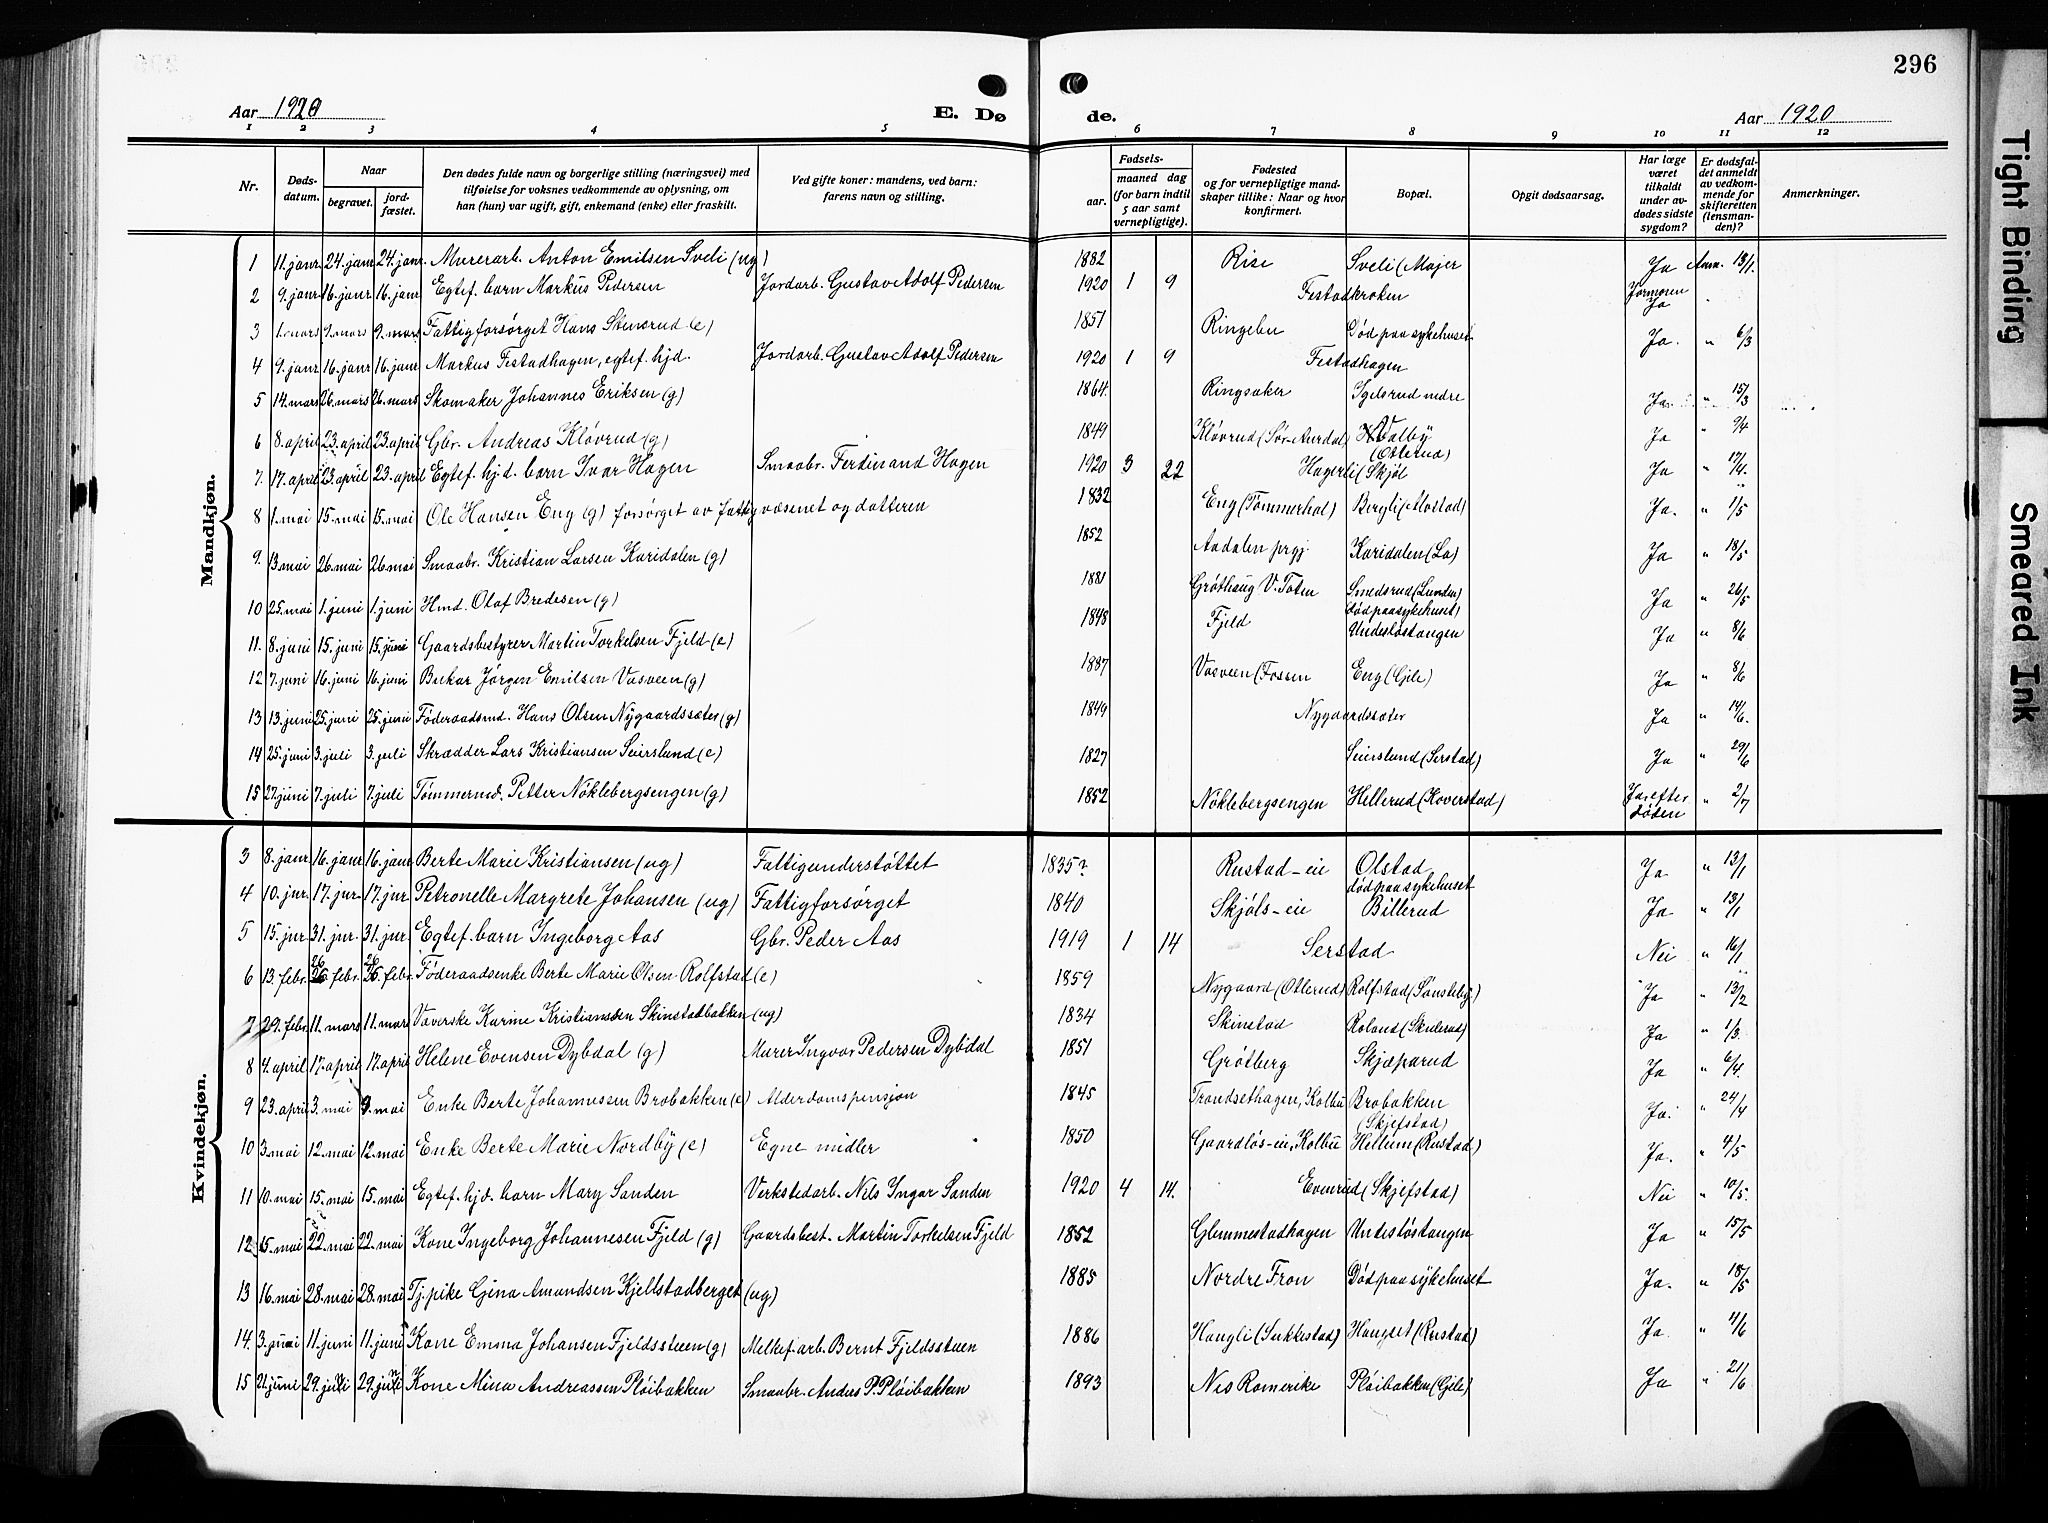 296
Aar 1920
E. Dø
de.
Aar 1920
1 2 3 4 5 6 7 8 9 10 11 12
Nr.
Døds-datum.
Naar
begravet.
jord-fæstet.
Den dødes fulde navn og borgerlige stilling (næringsvei) med tilføielse for voksnes vedkommende av oplysning, om han (hun) var ugift, gift, enkemand (enke) eller fraskilt.
Ved gifte koner: mandens, ved barn: farens navn og stilling.
Fødsels-
aar.
maaned dag
(for barn indtil 5 aar samt vernepligtige).
Fødested og for vernepligtige mandskaper tillike: Naar og hvor konfirmert.
Bopæl.
Opgit dødsaarsag.
Har læge været tilkaldt under av-dødes sidste sygdom?
Er dødsfaldet anmeldt av vedkommende for skifteretten (lensmanden)?
Anmerkninger.
Mandkjøn.
1 11. janr. 24. janr 24. janr. Murerarb. Anton Emilsen Sveli (ug) 1882 Rise Sveli (Majer Ja Anm. 13/1.
2 9. janr. 16. janr. 16. janr Egtef. barn Markus Pedersen Jordarb. Gustav Adolf Pedersen 1920 1 9 Festadkroken Jormoren Ja
3 1. mars 9. mars 9. mars Fattigforsørget Hans Stensrud (e) 1851 Ringebu Død paa sykehuset Ja. " 6/3
4 9. janr 16. janr 16. janr Markus Festadhagen, egtef. hjd. Jordarb. Gustav Adolf Pedersen 1920 1 9 Festadhagen
5 14. mars 26. mars 26. mars Skomaker Johannes Eriksen (g) 1864. Ringsaker Igelsrud nedre Ja " 15/3
6 8. april 23. april 23. april Gbr. Andreas Kløvrud (g) 1849 Kløvrud (Sør-Aurdal) Valby (Otterud) Ja " 9/4
7. 17. april 23. april 23. april Egtef. hjd. barn Ivar Hagen Smaabr. Ferdinand Hagen 1920 3 22 Hagerli (Skjøl Ja " 17/4.
8 1. mai 15. mai 15. mai Ole Hansen Eng (g) forsørget av fattigvæsenet og datteren 1832 Eng (Tømmerhol) Bergli (Alostad) Ja. " 1/5
9. 13. mai 26. mai 26. mai Smaabr. Kristian Larsen Karidalen (g) 1852 Aadalen prgj. Karidalen (Lo) Ja " 18/5
10 25. mai 1. juni 1. juni Hmd. Olaf Bredesen (g) 1881 Grøthaug V. Toten Smedsrud (Lunden) død paa sykehuset) Ja " 26/5
11. 8. juni 15. juni 15. juni Gaardsbestyrer Martin Torkelsen Fjeld (e) 1848 Fjeld Undesløstangen Ja " 8/6
12 7. juni 16. juni 16. juni Bukar Jørgen Emilsen Vasveen (g) 1887 Vasveen (Fossen Eng (Gjile) Ja " 8/6
13 13. juni 25. juni 25. juni Føderaadsmd. Hans Olsen Nygaardssæter (g) 1849 Nygaardssæter Ja " 14/6.
14 25. juni 3. juli 3. juli Skrædder Lars Kristiansen Seierslund (e) 1827 Seierslund (Serstad) Ja " 29/6
15 27. juni 7. juli 7. juli Tømmermd. Petter Nøklebergsengen (g) 1852 Nøklebergsengen Hellerud (Koverstad) Ja efter døden " 2/7
Kvindekjøn.
3 8. janr 16. janr 16. janr Berte Marie Kristiansen (ug) Fattigunderstøttet 1835? Rustad-eie Olstad død paa sykehuset Ja " 13/1
4 10. jnr. 17. jnr. 17. jnr. Petronelle Margrete Johansen (ug) Fattigforsørget 1840 Skjøls-eie Billerud Ja " 13/1
5 15. jnr. 31. jnr. 31. jnr. Egtef. barn Ingeborg Aas Gbr. Peder Aas 1919 1 14 Serstad Nei " 16/1
6 13. febr. 26. febr. 26. febr. Føderaadsenke Berte Marie Olsen Rolfstad (e) 1859 Nygaard (Otterud) Rolfstad (Sønsteby) Ja " 13/2
7 29. febr. 11. mars 11. mars Væverske Karine Kristiansen Skinstadbakken (ug) 1834 Skinstad Roland (Skulerud) Ja " 1/3.
8 4. april 17. april 17. april Helene Evensen Dybdal (g) Murer Ingvar Pedersen Dybdal 1851 Grøtberg Skjæparud Ja " 6/4.
9 23. april 3. mai 3. mai Enke Berte Johannessen Brobakken (e) Alderdomspensjon 1845 Trondsethagen, Kolbu Brobakken (Skjefstad) Ja. " 24/4
10 3. mai 12. mai 12. mai Enke Berte Marie Nordby (e) Egne midler 1850 Gaardløs-eie, Kolbu Hellum (Rustad) Ja. " 4/5
11 10. mai 15. mai 15. mai Egtef. hjd. barn Mary Sanden Verkstedarb. Nils Ingar Sanden 1920 4 14. Evenrud (Skjefstad) Nei " 10/5.
12 15. mai 22. mai 22. mai Kone Ingeborg Johannesen Fjeld (g) Gaardsbest. Martin Torkelsen Fjeld 1852 Glemmestadhagen Undesløstangen Ja " 15/5
13 16. mai 28. mai 28. mai Tj. pike Gina Amundsen Kjellstadberget (ug) 1885 Nordre Fron Død paa sykehuset Ja. " 18/5
14. 3. juni 11. juni 11. juni Kone Emma Johansen Fjeldssteen (g) Melkef. arb. Bernt Fjeldssteen 1886 Haugli (Sukkestad) Haugset (Rustad) Ja. " 11/6
15 21. juni 29. juni 29. juni Kone Mina Andreassen Pløibakken Smaabr. Anders P. Pløibakken 1893 Nes Romerike Pløibakken (Gjile) Ja " 21/6
Tight Binding
Smeared Ink